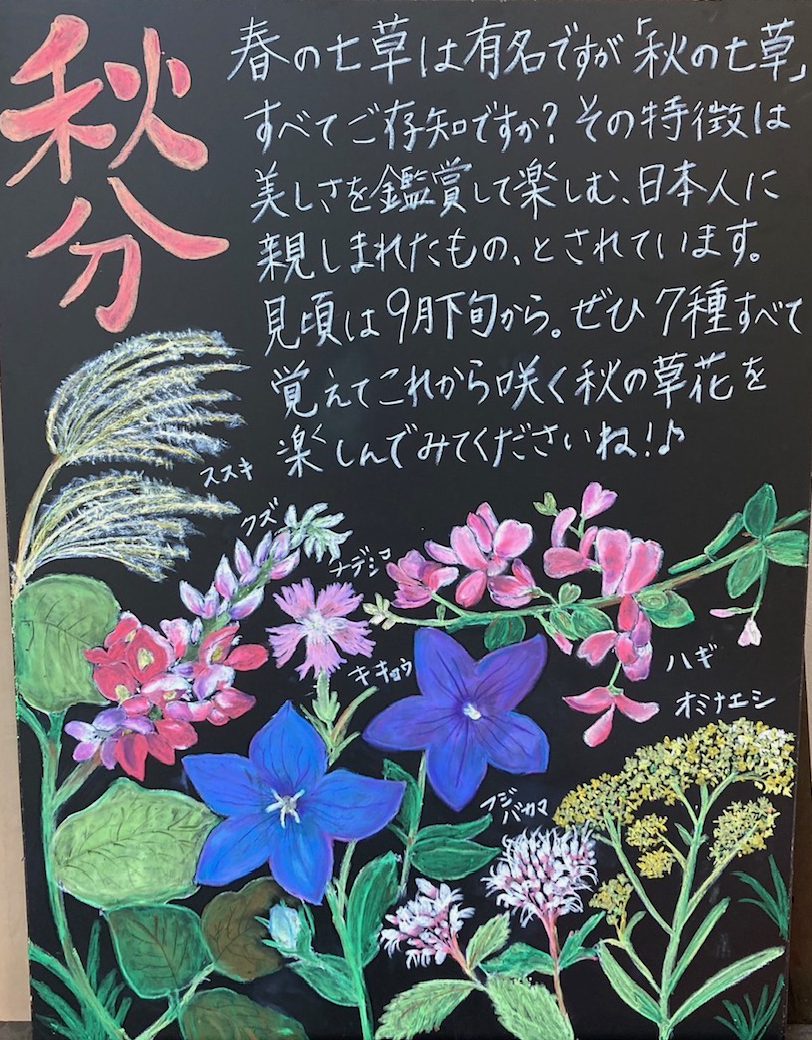 秋分
春の七草は有名ですが「秋の七草」
すべてご存知ですか?その特徴は
美しさを鑑賞して楽しむ、日本人に
親しまれたもの、とされています。
見頃は9月下旬から。ぜひ7種すべて
覚えてこれから咲く秋の草花を
楽しんでみてくださいね!♪
ススキ
クズ
ナデシコ
キキョウ
ハギ
オミナエシ
フジ
バカマ